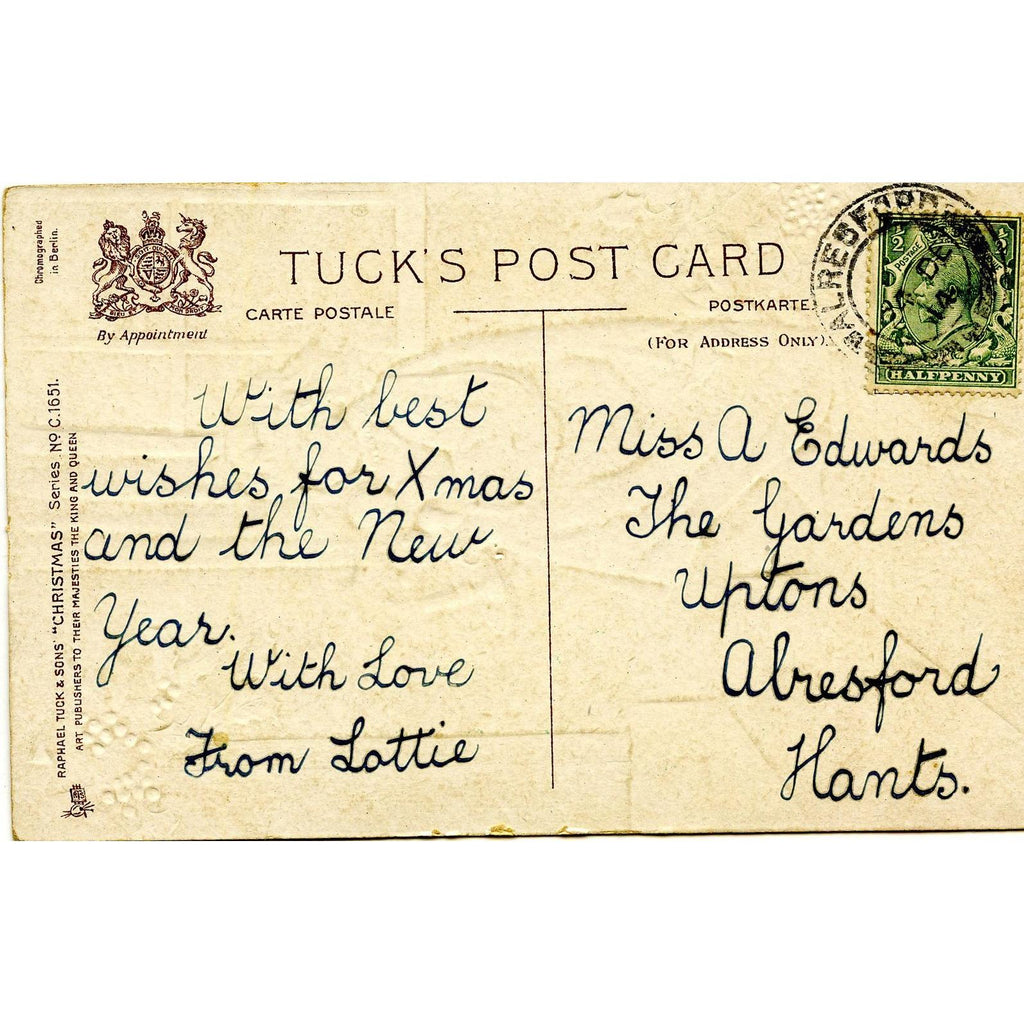 Chromographed
in Berlin.
DIEU ET MON DROIT
By Appointment
TUCK'S POST CARD
CARTE POSTALE
POSTKARTE
(FOR ADDRESS ONLY).
RAPHAEL TUCK & SONS' "CHRISTMAS" Series. No C.1651.
ART PUBLISHERS TO THEIR MAJESTIES THE KING AND QUEEN
With best
wishes for Xmas
and the New
Year.
With Love
From Lottie
ALRESFORD
DE
1/2
POSTAGE
HALFPENNY
Miss A Edwards
The Gardens
Uptons
Alresford
Hants.